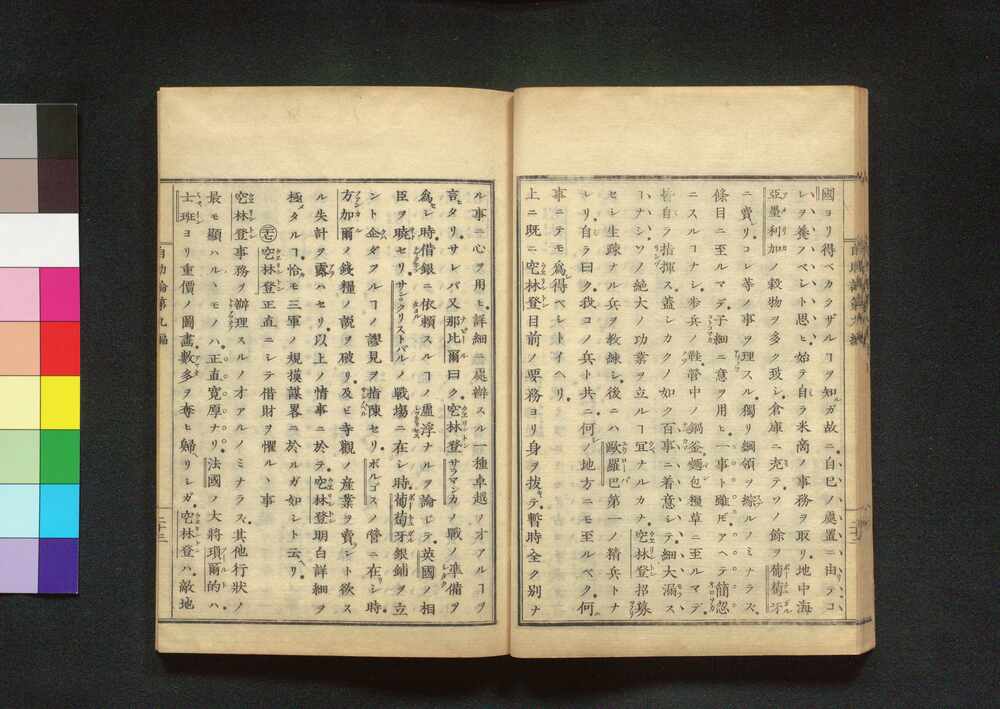 國ヨリ得ベカラザルコヲ知ルガ故ニ自己ノ處置ニ由ラヿ
レヲ養フベシト思ヒ始テ自ラ米商ノ事務ヲ取リ地中海
亞墨利加ノ穀物ヲ多ク販シ倉庫ニ充テソノ餘ヲ葡萄牙
ニ賣リコレ等ノ事ヲ理スル獨リ綱領ヲ綜ルノミナラズ
條目ニ至ルマデ子細ニ意ヲ用ヒ一事ト雖ドモアヘテ簡忽
ニスルコナシ歩兵ノ鞋管中ノ鍋釜麵包糧草ニ至ルマデ
皆自ラ指揮ス蓋シカクノ如ク百事ニ着意シテ細大漏ス
コナシソノ絶大ノ功業ヲ立ルコ宜ナルカナ空林登招募
セシ生疎ナル兵ヲ教練シ後ニハ歐羅巴第一ノ精兵トナ
レリ自ラ曰クコノ兵ト共ニ何ノ地方ニモ至ルベク何
事ニテモ爲シ得ベシトイヘリ
上ニ既ニ空林登目前ノ要務ヨリ身ヲ拔テ暫時全ク別ナ
ル事ニ心ヲ用ヒ詳細ニ處辦スル一種卓越ノオアルコヲ
言タリサレバ又那比爾曰ク空林登サラマンカノ戰ノ準備ヲ
爲シ時借銀ニ依頼スルコノ虚浮ナルヲ論ジテ英國ノ相
臣ヲ曉セリサンクリストバルノ戰場ニ在シ時葡萄牙銀鋪ヲ立
ント企ダツルコノ謬見ヲ指陳セリボルゴスノ管ニ在シ時
方加爾ノ錢糧ノ說ヲ破リ及ビ寺觀ノ産業ヲ賣ント欲ス
ル失計ヲ露ハセリ以上ノ情事ニ於テ空林登明白詳細ヲ
極メタルコ恰モ三軍ノ規摸謀畧ニ於ルガ如シト云ヘリ
〇廿七 空林登正直ニシテ借財ヲ懼ルヽ事
空林登事務ヲ辦理スルノオアルノミナラズ其他行狀ノ
最モ顯ハルヽモノハ正直寛厚ナリ法國ノ大將瑣爾的ハ
士班ヨリ重價ノ圖畫數多ヲ奪ヒ歸リシガ空林登ハ敵地
自助論第九編
二十三